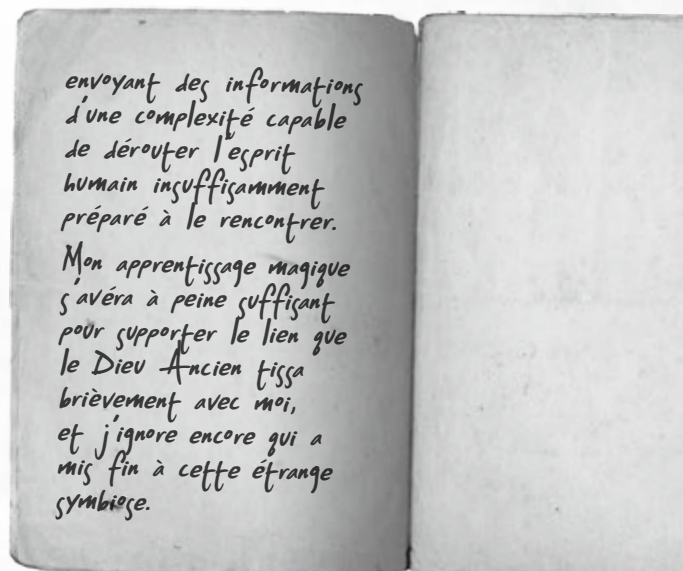 envoyant des informations
d'une complexité capable
de dérouter l'esprit
humain insuffisamment
préparé à le rencontrer.
Mon apprentissage magique
s'avéra à peine suffisant
pour supporter le lien que
le Dieu Ancien tissa
brièvement avec moi,
et j'ignore encore qui a
mis fin à cette étrange
symbiose.